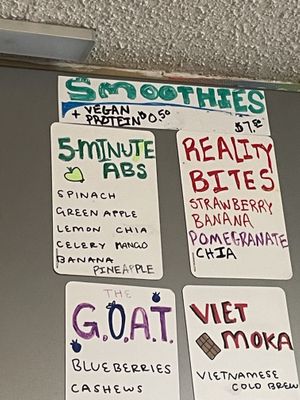 SMOOTHIES
+ VEGAN PROTEIN $0.50
5-MINUTE
ABS
SPINACH
GREEN APPLE
LEMON CHIA
CELERY MANGO
BANANA
PINEAPPLE
REALITY
BITES
STRAWBERRY
BANANA
POMEGRANATE
CHIA
THE
G.O.A.T.
BLUEBERRIES
CASHEWS
VIET
MOKA
VIETNAMESE
COLD BREW